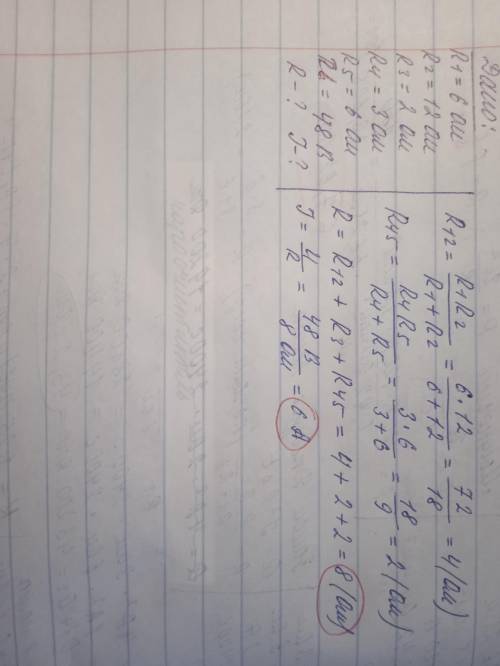 Дано:
R1 = 6 Ом
R2 = 12 Ом
R3 = 2 Ом
R4 = 3 Ом
R5 = 6 Ом
U = 48 В
R - ? I - ?
R12 = R1R2 / R1 + R2 = 6 · 12 / 6 + 12 = 72 / 18 = 4 (Ом)
R45 = R4R5 / R4 + R5 = 3 · 6 / 3 + 6 = 18 / 9 = 2 (Ом)
R = R12 + R3 + R45 = 4 + 2 + 2 = 8 (Ом)
I = U / R = 48 В / 8 Ом = 6 А